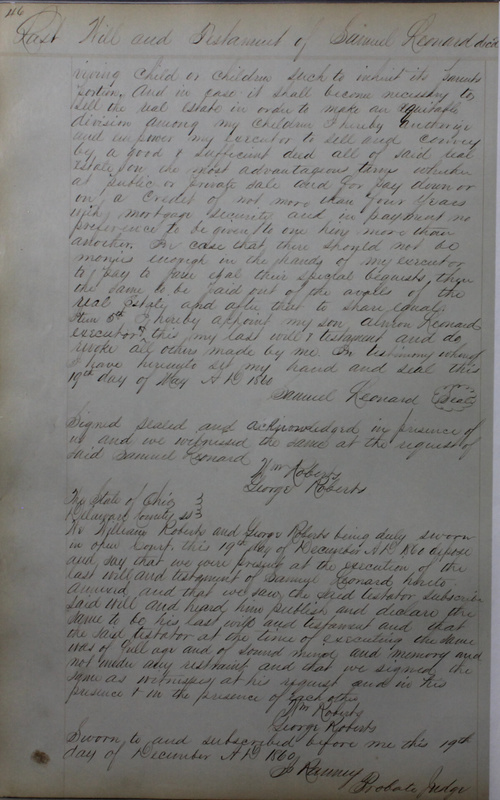 116
Last Will and Testament of Samuel Leonard decd
viving child or children such to inherit its parents
portion. And in case it shall become necessary to
sell the real estate in order to make an equitable
division among my children I hereby authorize
and empower my executor to sell and convey
by a good & sufficient deed all of said real
estate on the most advantageous terms whether
at public or private sale and for pay down or
on a credit of not more than four years
with mortgage security and in payment no
preference to be given to one heir more than
another. In case that there should not be
monies enough in the hands of my executor
to pay to my their special bequests, then
the same to be paid out of the avails of the
real Estate, and after that to share equal.
Item 5th I hereby appoint my son Almon Leonard
executor of this my last will & testament and do
revoke all others made by me. In testimony whereof
I have hereunto set my hand and seal this
19th day of May A.D. 1860
Samuel Leonard (Seal)
Signed sealed and acknowledged in presence of
us and we witnessed the same at the request of
said Samuel Leonard
Wm Roberts
George Roberts
The State of Ohio }
Delaware County ss }
We William Roberts and George Roberts being duly sworn
in open Court, this 19th day of December A.D. 1860 depose
and say that we were present at the execution of the
last will and testament of Samuel Leonard hereto
annexed and that we saw the said testator subscribe
said will and heard him publish and declare the
same to be his last will and testament and that
the said testator at the time of executing the same
was of full age and of sound mind and memory and
not under any restraint and that we signed the
same as witnesses at his request and in his
presence & in the presence of each other
Wm Roberts
George Roberts
Sworn to and subscribed before me this 19th
day of December A.D. 1860
Ranney
Probate Judge